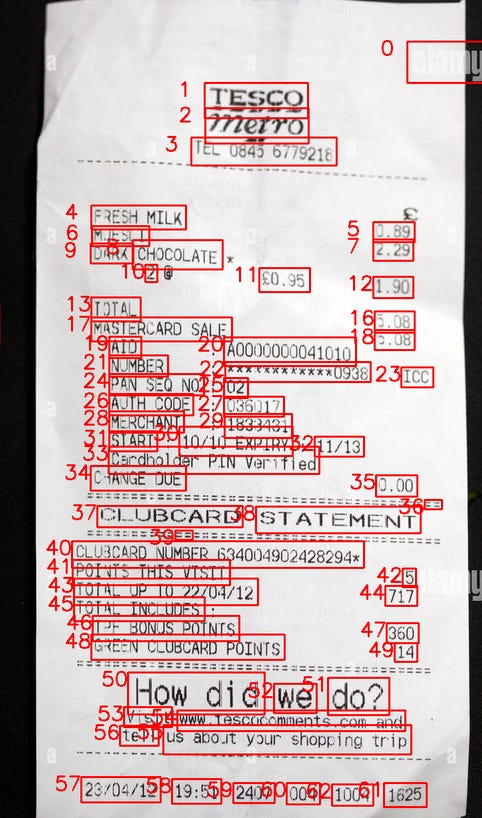 alamy
TESCO
metro
TEL 0845 6779218
£
FRESH MILK 0.89
MUESLI 2.29
DARK CHOCOLATE *
2 @ £0.95 1.90
TOTAL 5.08
MASTERCARD SALE 5.08
AID : A0000000041010
NUMBER : ************0938 ICC
PAN SEQ NO : 02
AUTH CODE : 036017
MERCHANT : 1833431
START : 10/10 EXPIRY : 11/13
Cardholder PIN Verified
CHANGE DUE 0.00
CLUBCARD STATEMENT
CLUBCARD NUMBER 634004902428294*
POINTS THIS VISIT 5
TOTAL UP TO 22/04/12 717
TOTAL INCLUDES :
TPF BONUS POINTS 360
GREEN CLUBCARD POINTS 14
How did we do?
Visit www.tescocomments.com and
tell us about your shopping trip
23/04/12 19:51 2407 004 1004 1625